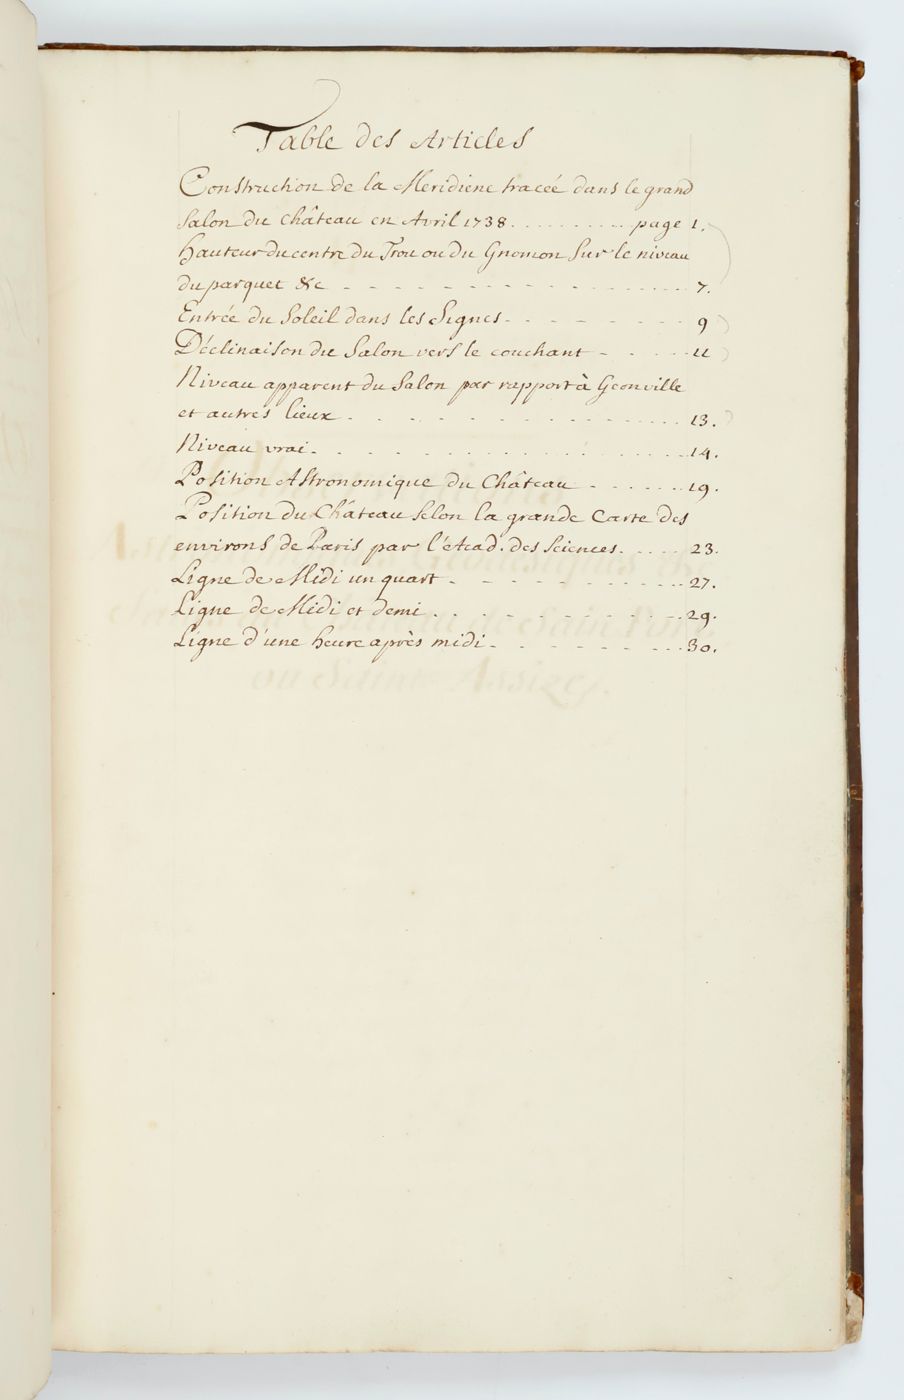 Table des Articles
Construction de la Meridiene tracée dans le grand
Salon du château en Avril 1738 . . . . . . . . . . page 1.
hauteur du centre du Trou ou du Gnomon sur le niveau
du parquet &c - - - - - - - - - - - - - - - - 7.
Entrée du Soleil dans les Signes - - - - - - - - 9
Déclinaison du Salon vers le couchant - - - - - - 11
Niveau apparent du Salon par rapport à Geonville
et autres lieux . . . . . . . . . . . . . . . . 13.
Niveau vrai . . . . . . . . . . . . . . . . . 14.
Position Astronomique du Château - - - - - - - 19.
Position du Château selon la grande Carte des
environs de Paris par l'Acad. des Sciences . . . . . 23.
Ligne de Midi un quart - - - - - - - - - - - 27.
Ligne de Midi et demi . . - - - - - - - - - - 29.
Ligne d'une heure après midi - - - - - - - - - 30.
ou Sainte Assize.